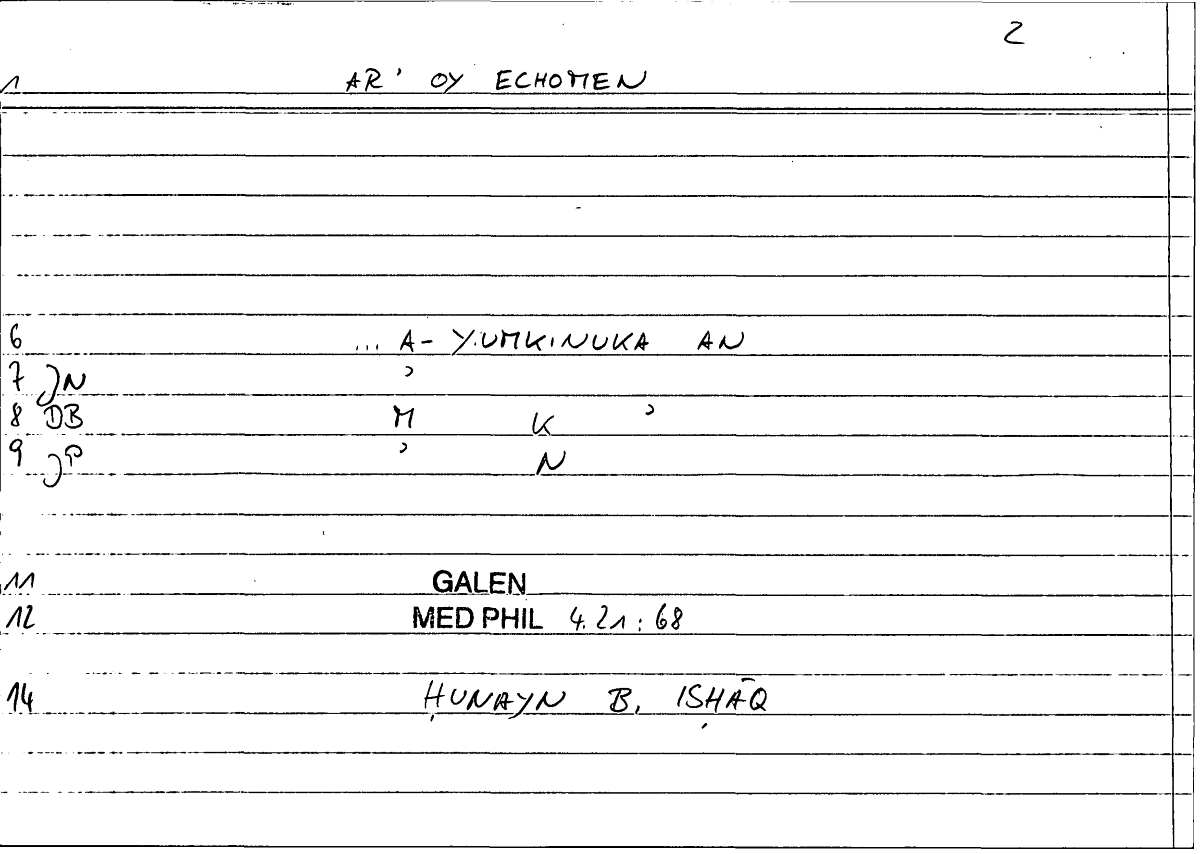 2
1 AR' OY ECHOMEN
6 ... A- YUMKINUKA AN
7 JN ʾ
8 DB M K ʾ
9 JP ʾ N
11 GALEN
12 MED PHIL 4.21:68
14 ḤUNAYN B. ISḤĀQ